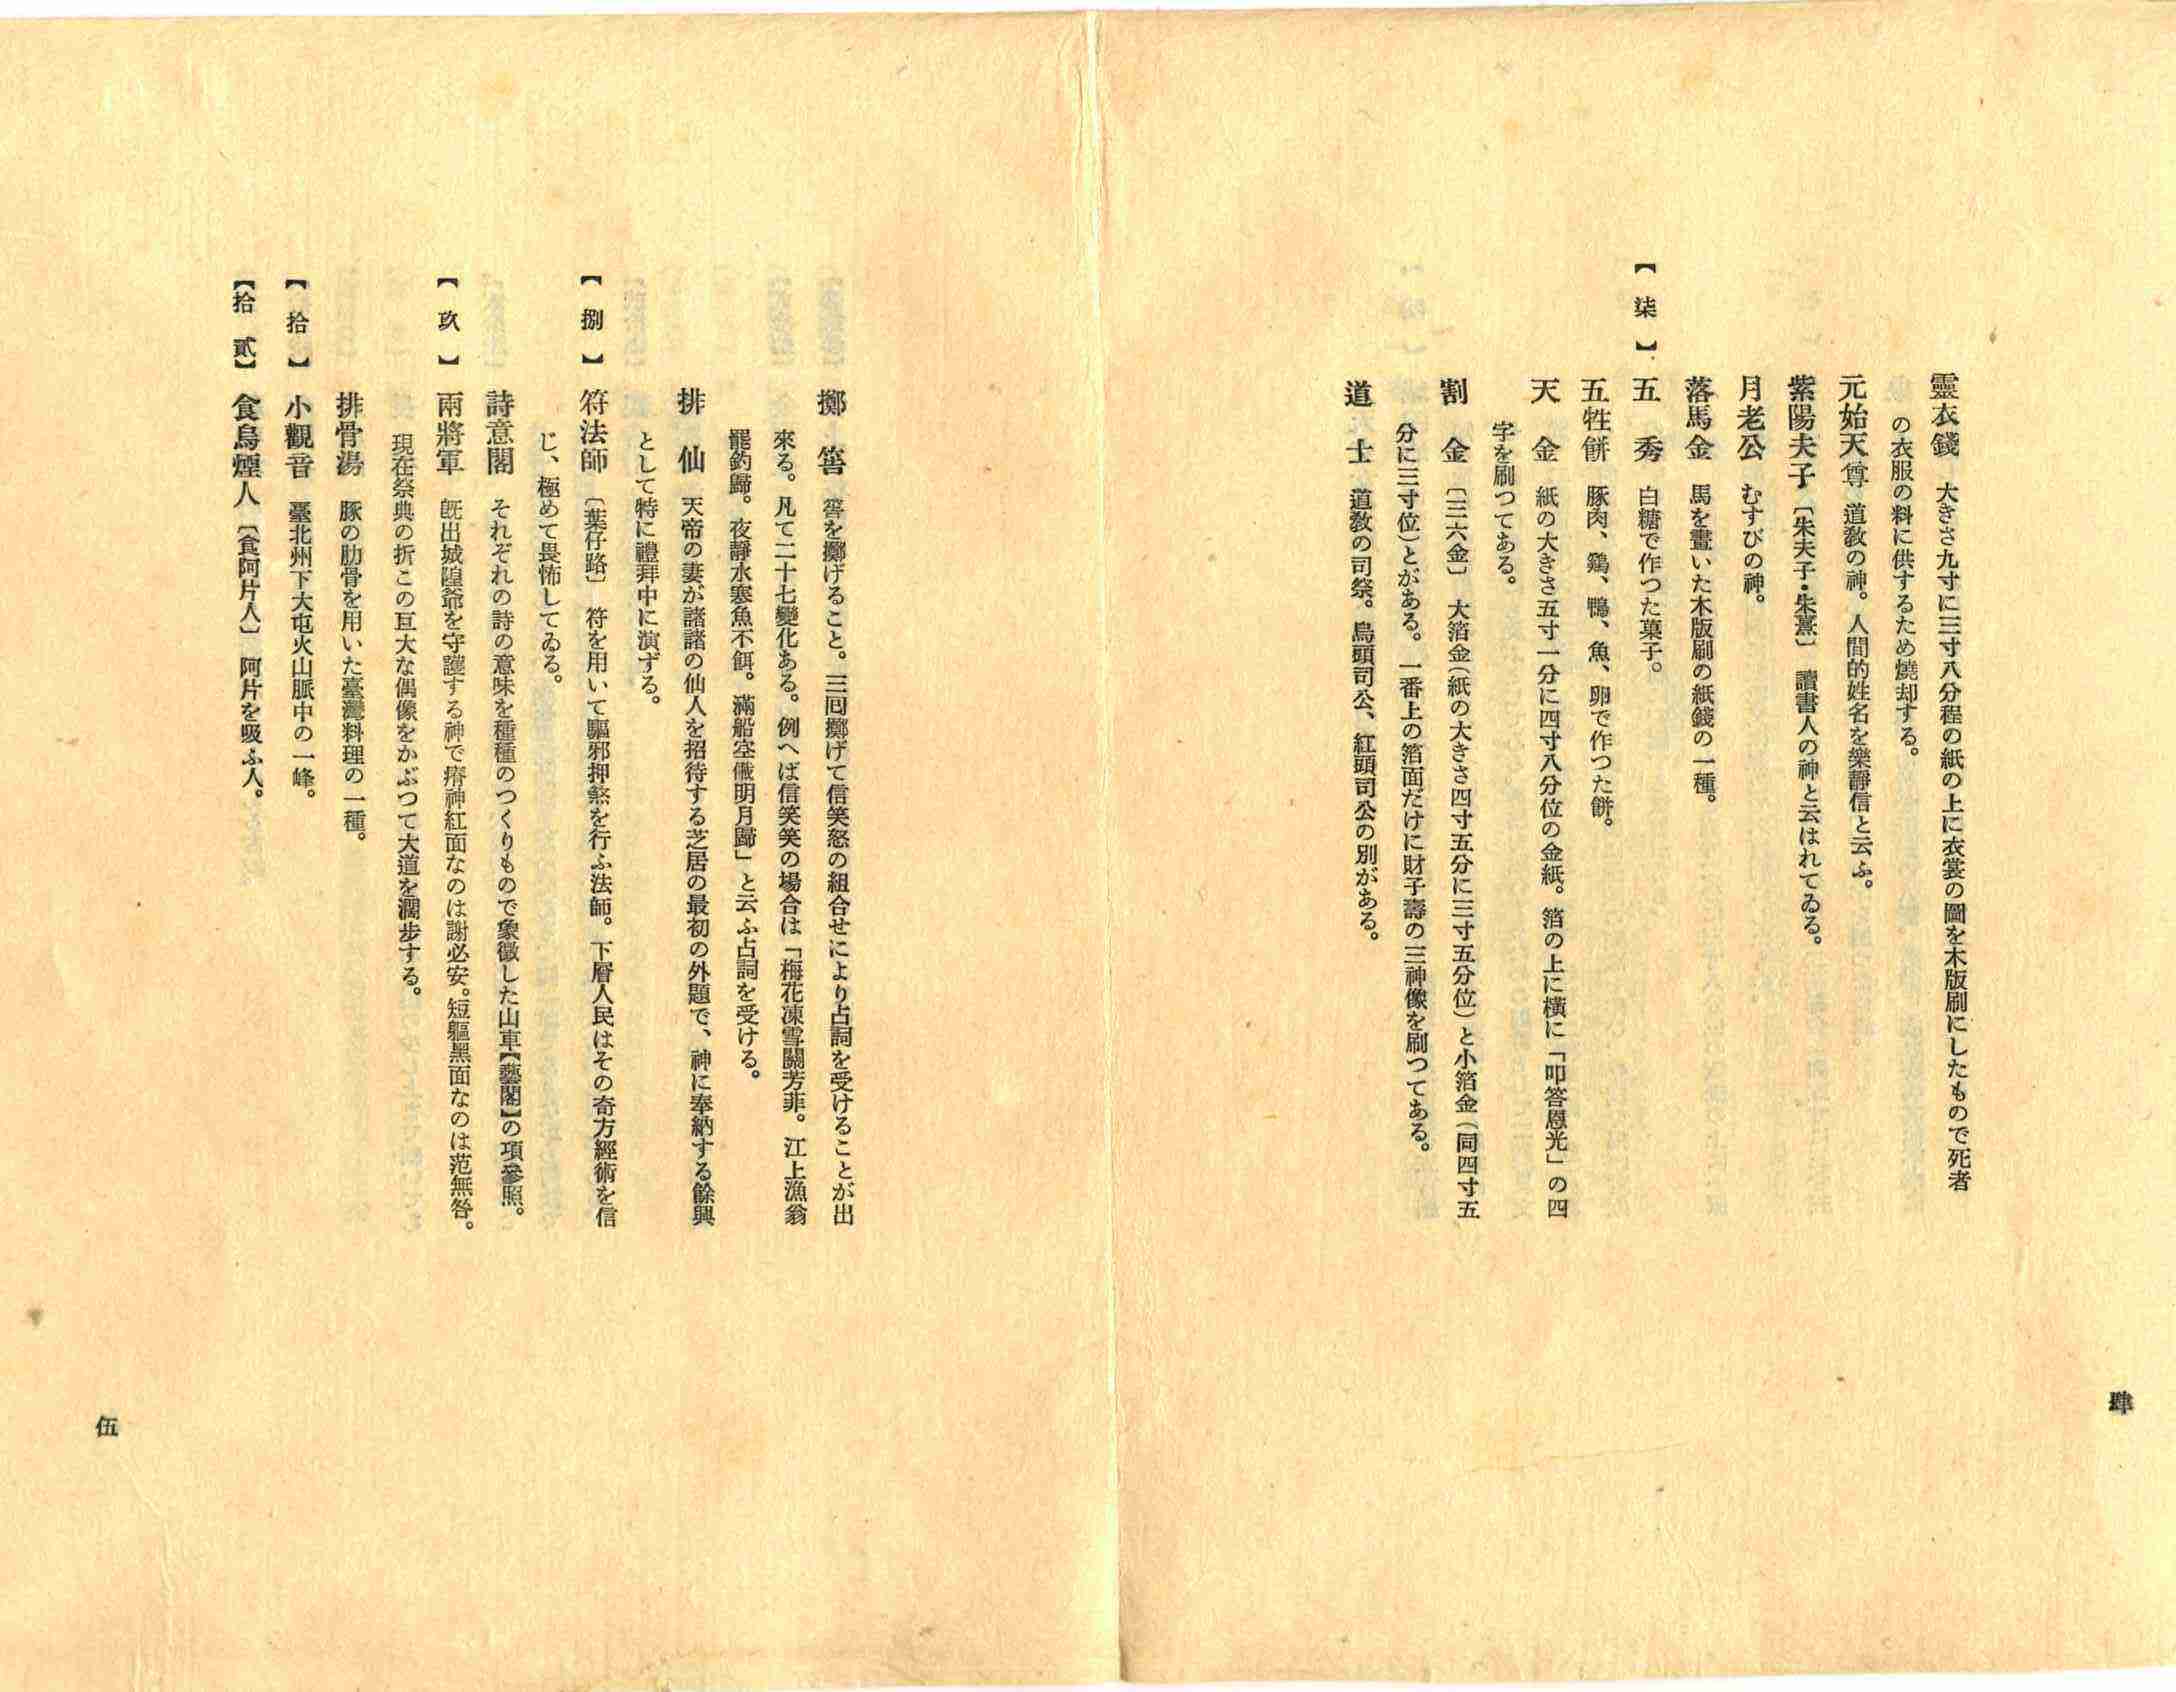 靈衣錢　大きさ九寸に三寸八分程の紙の上に衣裳の圖を木版刷にしたもので死者
の衣服の料に供するため燒却する。
元始天尊　道敎の神。人間的姓名を樂靜信と云ふ。
紫陽夫子〔朱夫子・朱熹〕　讀書人の神と云はれてゐる。
月老公　むすびの神。
落馬金　馬を畫いた木版刷の紙錢の一種。
【柒】　五　秀　白糖で作つた菓子。
五牲餅　豚肉、鷄、鴨、魚、卵で作つた餅。
天　金　紙の大きさ五寸一分に四寸八分位の金紙。箔の上に橫に「叩答恩光」の四
字を刷つてある。
割　金　〔三六金〕　大箔金（紙の大きさ四寸五分に三寸五分位）と小箔金（同四寸五
分に三寸位）とがある。一番上の箔面だけに財子壽の三神像を刷つてある。
道　士　道敎の司祭。烏頭司公、紅頭司公の別がある。
肆
擲　筶　筶を擲げること。三囘擲げて信笑怒の組合せにより占詞を受けることが出
來る。凡て二十七變化ある。例へば信笑笑の場合は「梅花凍雪鬭芳菲。江上漁翁
罷釣歸。夜靜水寒魚不餌。滿船空儎明月歸」と云ふ占詞を受ける。
排　仙　天帝の妻が諸諸の仙人を招待する芝居の最初の外題で、神に奉納する餘興
として特に禮拜中に演ずる。
【捌】　符法師　〔葉仔路〕　符を用いて驅邪押煞を行ふ法師。下層人民はその奇方經術を信
じ、極めて畏怖してゐる。
詩意閣　それぞれの詩の意味を種種のつくりもので象徵した山車【藝閣】の項參照。
【玖】　兩將軍　既出城隍爺を守護する神で瘠神紅面なのは謝必安。短軀黑面なのは范無咎。
現在祭典の折この亙大な偶像をかぶつて大道を濶步する。
排骨湯　豚の肋骨を用いた臺灣料理の一種。
【拾】　小觀音　臺北州下大屯火山脈中の一峰。
【拾貳】　食烏煙人〔食阿片人〕　阿片を吸ふ人。
伍